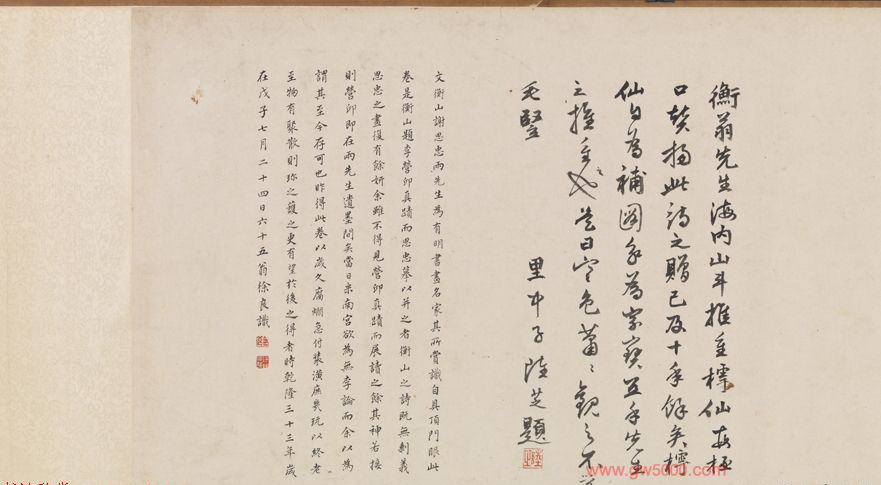 衡翁先生海内山斗推重樗仙每極
口獎揚此詩之贈已及十年餘矣樗
仙自為補圖永為家寶五峰先生
之推重
毛豎
里中子陸芝題
文衡山謝思忠兩先生為有明書畫名家其所賞識自具頂門眼此
卷是衡山題李營卬真蹟而思忠摹以并之者衡山之詩既無剩義
思忠之畫復有餘妍余雖不得見營卬真蹟而展讀之餘其神若接
則營卬即在兩先生遺墨間矣當日米南宮欲為無李論而余以為
謂其至今存可也昨得此卷以歲久腐爛急付裝潢庶幾玩以終老
至物有聚散則珍之護之更有望於後之得者時乾隆三十三年歲
在戊子七月二十四日六十五翁徐良識
www.gw5000.com